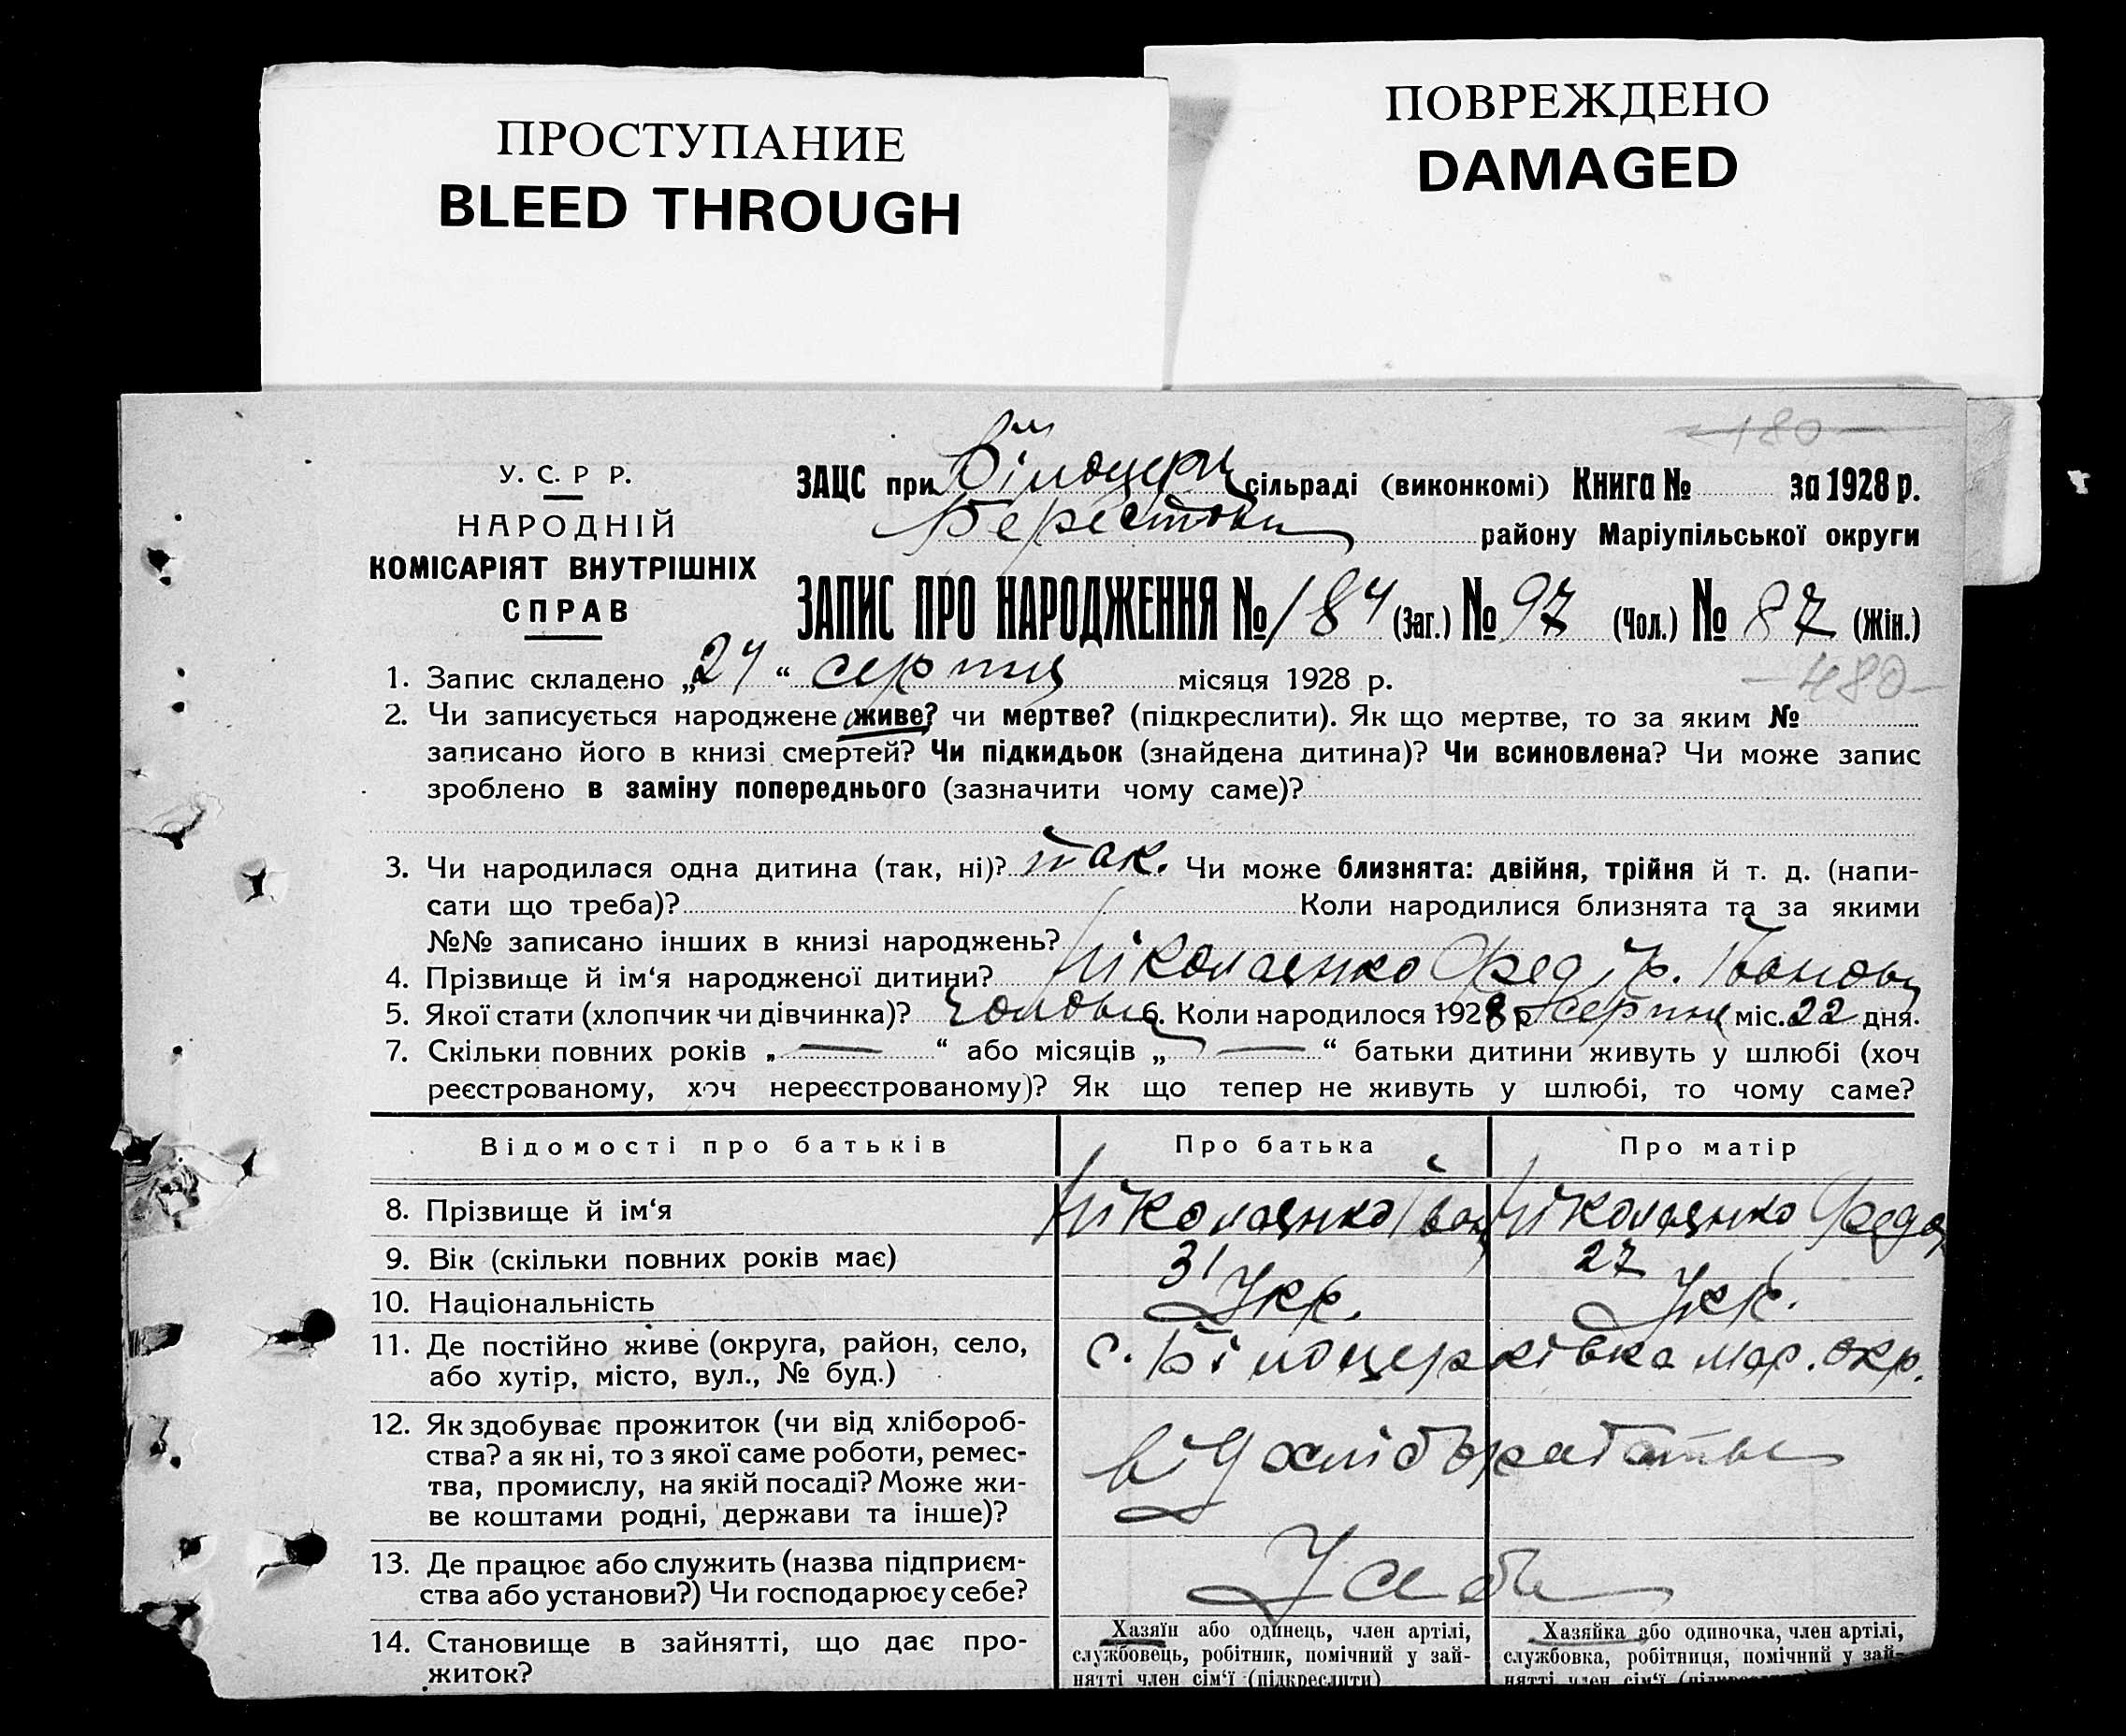 ПРОСТУПАНИЕ
BLEED THROUGH
ПОВРЕЖДЕНО
DAMAGED
180
У. С. Р Р.
НАРОДНІЙ
КОМІСАРІЯТ ВНУТРІШНІХ
СПРАВ
ЗАЦС при Білоцерк сільраді (виконкомі) Книга № за 1928 р.
Берестов району Маріупільської округи
ЗАПИС ПРО НАРОДЖЕННЯ № 184 (Заг.) № 97 (Чол.) № 87 (Жін.)
480
1. Запис складено „24“ серпня місяця 1928 р.
2. Чи записується народжене живе? чи мертве? (підкреслити). Як що мертве, то за яким №
записано його в книзі смертей? Чи підкидьок (знайдена дитина)? Чи всиновлена? Чи може запис
зроблено в заміну попереднього (зазначити чому саме)?
3. Чи народилася одна дитина (так, ні)? так. Чи може близнята: двійня, трійня й т. д. (напи-
сати що треба)? Коли народилися близнята та за якими
№№ записано інших в книзі народжень?
4. Прізвище й ім‘я народженої дитини? Ніколаєнко Федір. Іванов
5. Якої стати (хлопчик чи дівчинка)? Чоловіч 6. Коли народилося 1928 р серпня міс. 22 дня.
7. Скільки повних років „ — “ або місяців „ — “ батьки дитини живуть у шлюбі (хоч
реєстрованому, хоч нереєстрованому)? Як що тепер не живуть у шлюбі, то чому саме?
Відомості про батьків Про батька Про матір
8. Прізвище й ім‘я Ніколаєнко Іван Ніколаєнко
9. Вік (скільки повних років має) 31 27
10. Національність Укр. Укр.
11. Де постійно живе (округа, район, село,
або хутір, місто, вул., № буд.)
с. Білоцерківка Мар. окр.
12. Як здобуває прожиток (чи від хлібороб-
ства? а як ні, то з якої саме роботи, ремес-
тва, промислу, на якій посаді? Може жи-
ве коштами родні, держави та інше)?
13. Де працює або служить (назва підприєм-
ства або установи?) Чи господарює у себе?
У себе
14. Становище в зайнятті, що дає про-
житок?
Хазяїн або одинець, член артілі,
службовець, робітник, помічний у зай-
нятті член сім‘ї (підкреслити)
Хазяйка або одиночка, член артілі,
службовка, робітниця, помічний у зай-
нятті член сім‘ї